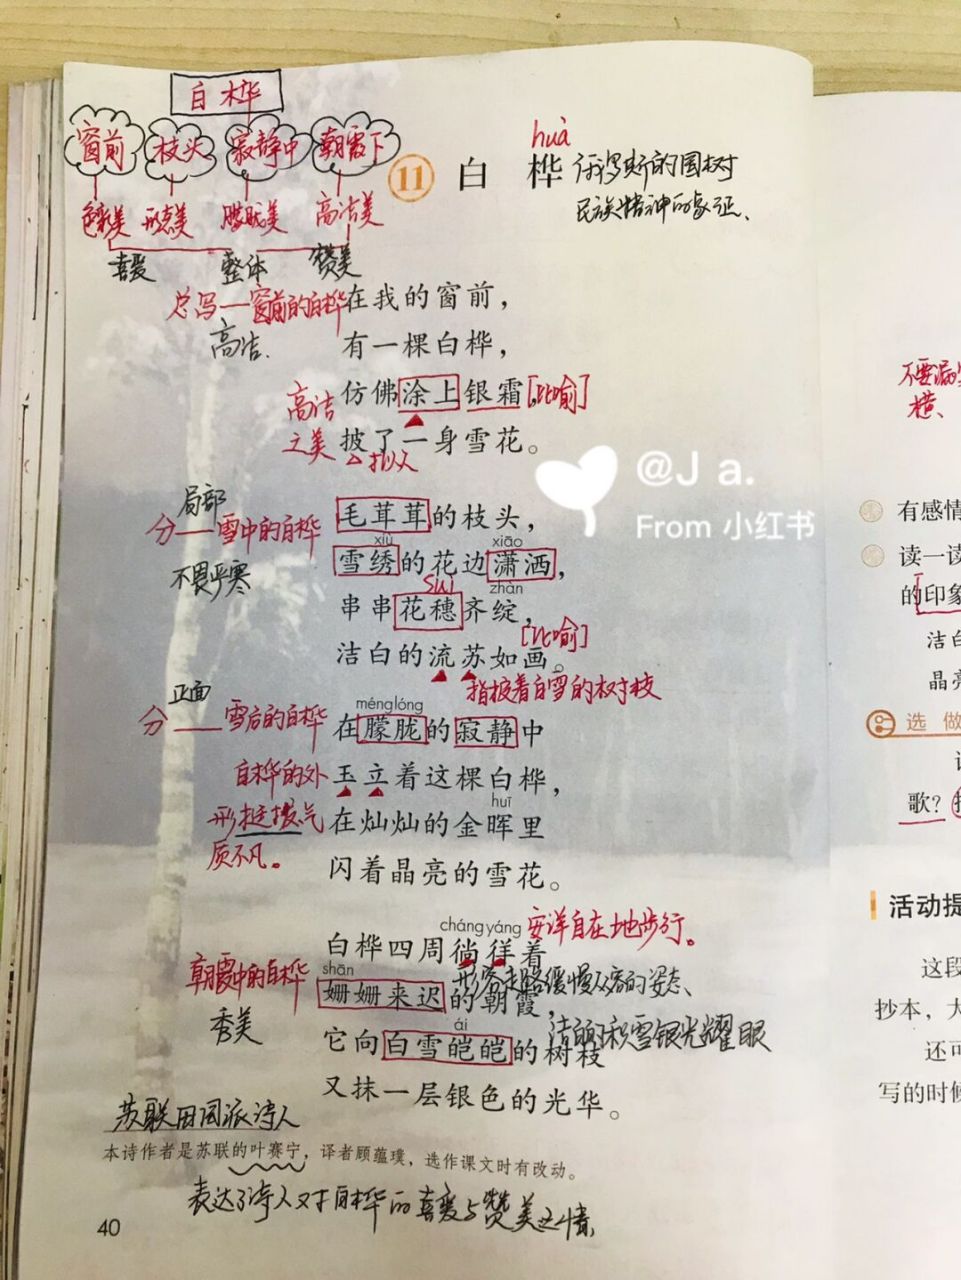 白桦
窗前 枝头 寂静中 朝霞下
色彩美 形态美 朦胧美 高洁美
喜爱 整体 赞美
11 白 桦
huà
俄罗斯的国树
民族精神的象征、
总写——窗前的白桦
高洁.
在我的窗前，
有一棵白桦，
仿佛涂上银霜，[比喻]
披了一身雪花。
高洁
之美
拟人
@J a.
From 小红书
局部
分——雪中的白桦
不畏严寒
毛茸茸的枝头，
xiù xiāo
雪绣的花边潇洒，
suì zhàn
串串花穗齐绽，
[比喻]
洁白的流苏如画。
指披着白雪的树枝
正面
分——雪后的白桦
méng lóng
在朦胧的寂静中
玉立着这棵白桦，
huī
在灿灿的金晖里
闪着晶亮的雪花。
白桦的外
形挺拔气
质不凡。
cháng yáng
安详自在地步行。
白桦四周徜徉着
形容走路缓慢从容的姿态、
shān
姗姗来迟的朝霞，
ái
它向白雪皑皑的树枝
洁白的积雪银光耀眼
又抹一层银色的光华。
朝霞中的白桦
秀美
苏联田园派诗人
本诗作者是苏联的叶赛宁，译者顾蕴璞，选作课文时有改动。
表达了诗人对白桦的喜爱与赞美之情
40
不要漏
横、
有感情
读一读
的印象
洁白
晶亮
选 做
歌？
活动提
这段
抄本，大
还可
写的时候